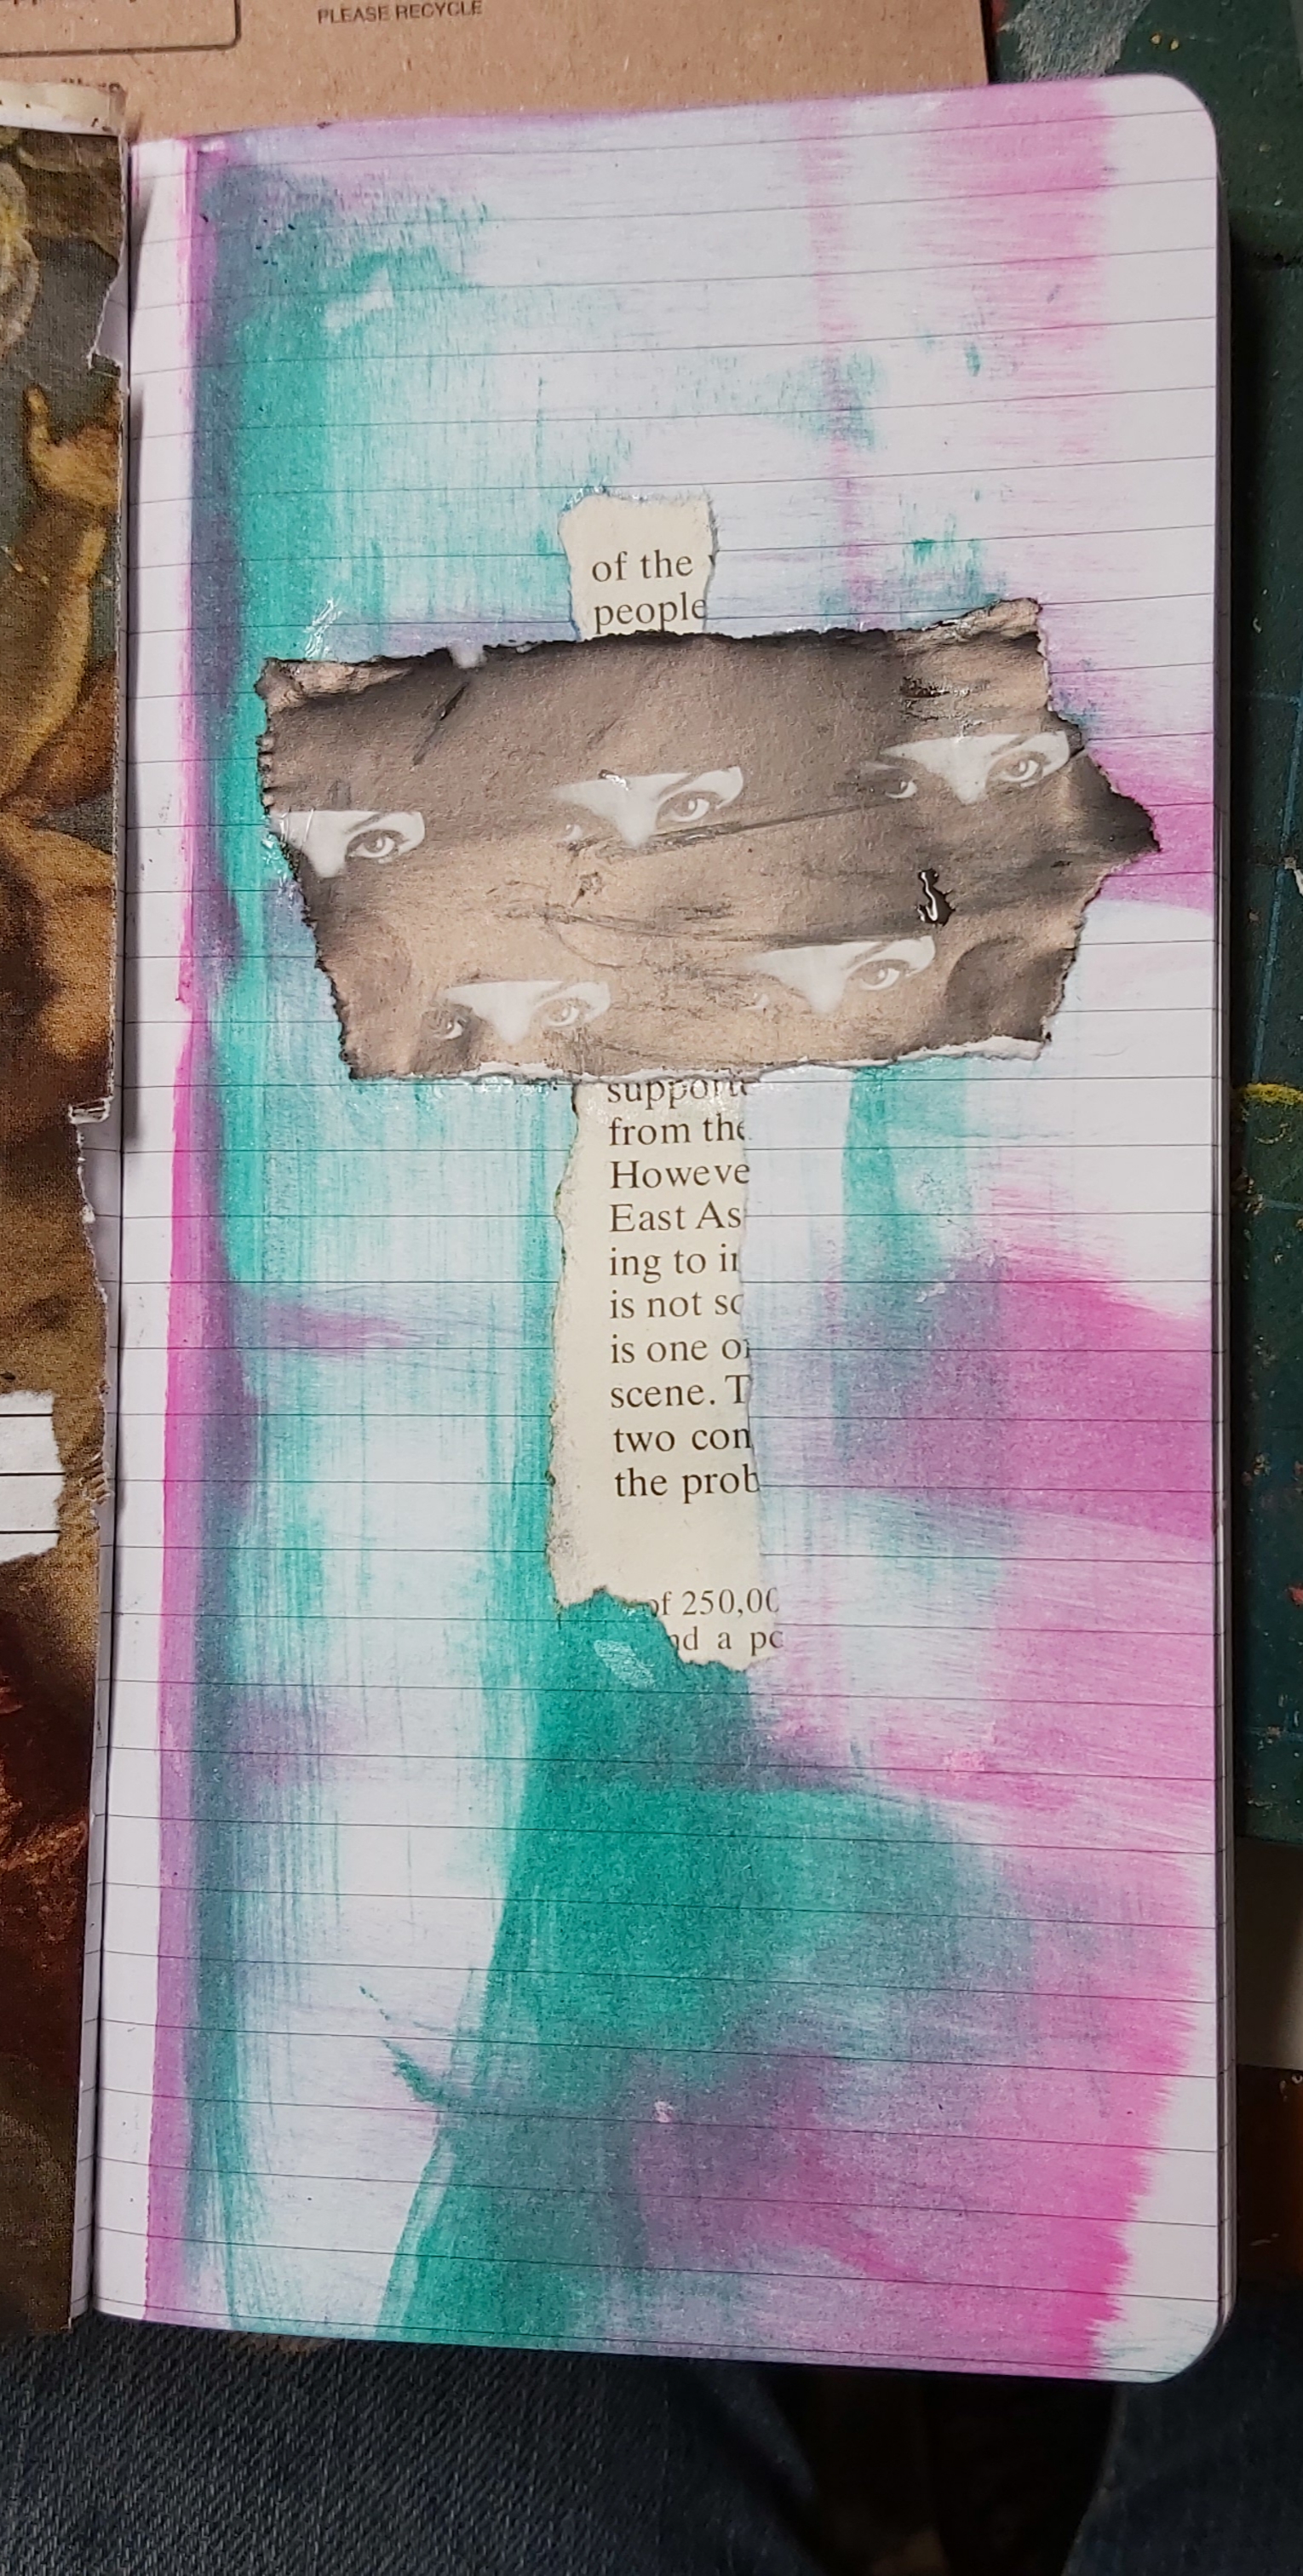 PLEASE RECYCLE
of the
people
supporte
from the
Howeve
East As
ing to
is not
is one
scene. T
two con
the prob
of 250,00
a